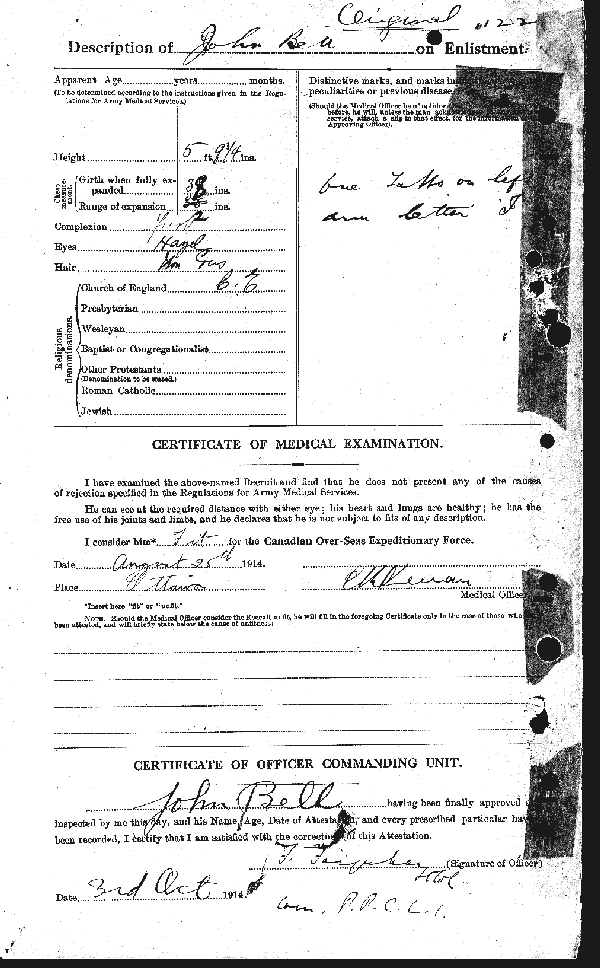 Original 122
Description of John Bell on Enlistment.
Apparent Age years months.
(To be determined according to the instructions given in the Regulations for Army Medical Services.)
Height 5 ft. 9 1/4 ins.
Chest measurement.
Girth when fully expanded 38 ins.
Range of expansion 2 ins.
Complexion
Eyes Hazel
Hair
Religious denominations.
Church of England C. E
Presbyterian
Wesleyan
Baptist or Congregationalist
Other Protestants
(Denomination to be stated.)
Roman Catholic
Jewish
Distinctive marks, and marks
peculiarities or previous disease
(Should the Medical Officer be
before, he will, unless the man
service, attach a slip to that effect, for the information
Approving Officer).
one Tatto on lef
arm letter
CERTIFICATE OF MEDICAL EXAMINATION.
I have examined the above-named Recruit and find that he does not present any of the causes
of rejection specified in the Regulations for Army Medical Services.
He can see at the required distance with either eye; his heart and lungs are healthy; he has the
free use of his joints and limbs, and he declares that he is not subject to fits of any description.
I consider him* Fit for the Canadian Over-Seas Expeditionary Force.
Date August 25th 1914.
Place Ottawa
Medical Office
*Insert here "fit" or "unfit."
NOTE. Should the Medical Officer consider the Recruit unfit, he will fill in the foregoing Certificate only in the case of those who
been attested, and will briefly state below the cause of unfitness:
CERTIFICATE OF OFFICER COMMANDING UNIT.
John Bell having been finally approved
inspected by me this day, and his Name, Age, Date of Attestation, and every prescribed particular hav
been recorded, I certify that I am satisfied with the correctness of this Attestation.
F. Farquhar (Signature of Officer)
Date 3rd Oct 1914.
Com. P.P.C.L.I.